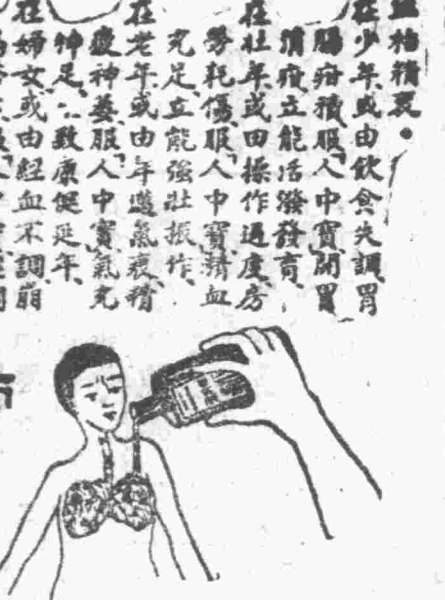 血枯精衰●
在少年或由飲食失調胃
腸疳積服「人中寶」開胃
消疳立能活潑發育、
在壯年或由操作過度房
勞耗傷服「人中寶」精血
充足立能強壯振作、
在老年或由年邁氣衰精
疲神萎服「人中寶」氣充
神足、致康健延年、
在婦女或由經血不調崩